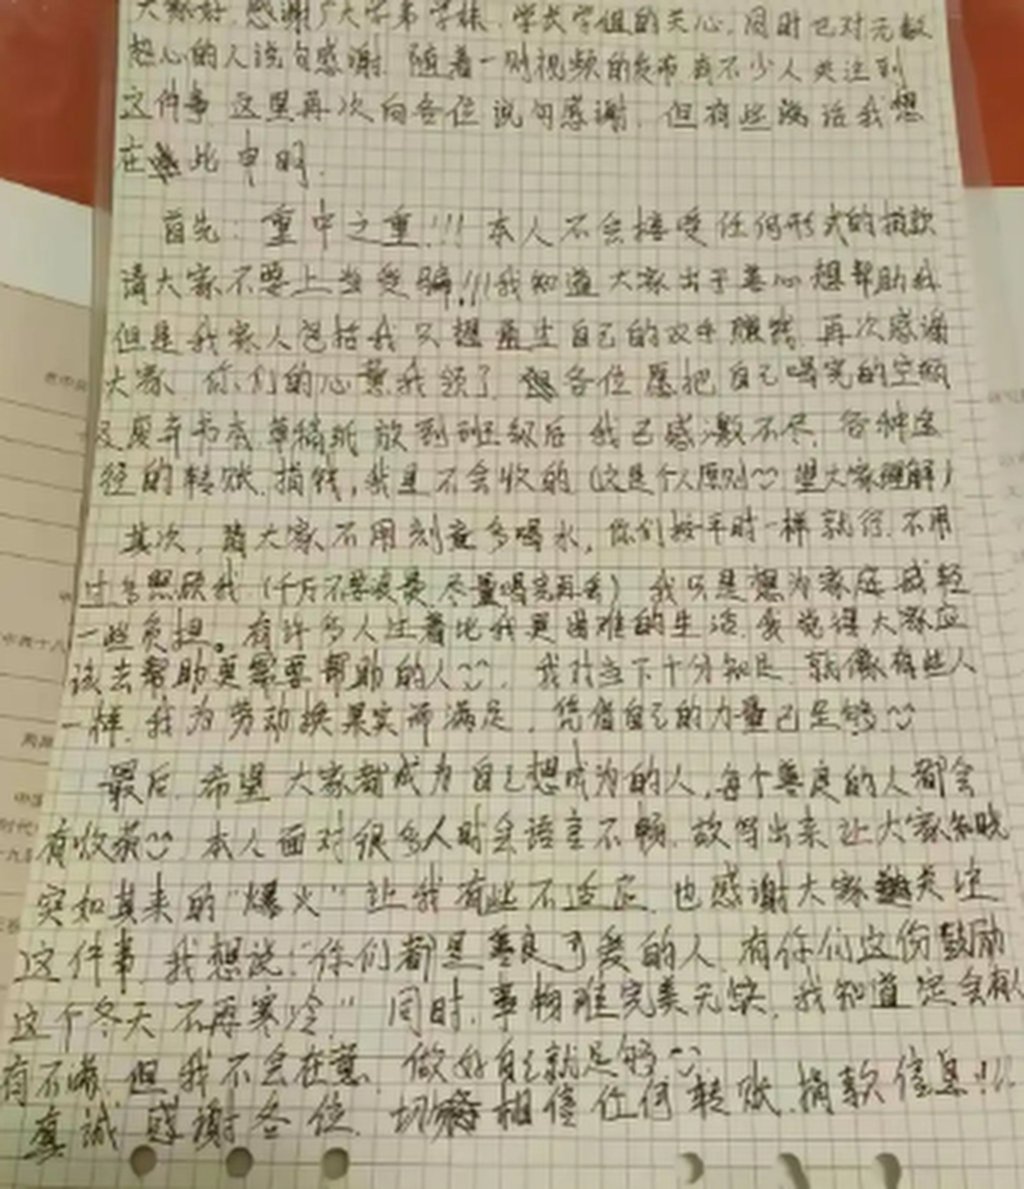 大家好，感谢广大学弟学妹、学长学姐的关心，同时也对无数
热心的人说句感谢。随着一则视频的发布，有不少人关注到
这件事，这里再次向各位说句感谢，但有些话我想
在此申明。
首先：重中之重!!!本人不会接受任何形式的捐款
请大家不要上当受骗!!!我知道大家出于善心想帮助我
但是我家人包括我只想通过自己的双手赚钱，再次感谢
大家、你们的心意我领了，各位愿把自己喝完的空瓶
及废弃书本、草稿纸放到班级后我已感激不尽，各种途
径的转账、捐钱，我是不会收的（这是个人原则 望大家理解）
其次，请大家不用刻意多喝水，你们按平时一样就行，不用
过多照顾我（千万不要浪费 尽量喝完再丢）我只是想为家庭减轻
一些负担。有许多人过着比我更困难的生活，我觉得大家应
该去帮助更需要帮助的人 我对当下十分知足，就像有些人
一样，我为劳动换果实而满足，凭借自己的力量已足够
最后，希望大家都成为自己想成为的人，每个善良的人都会
有收获 本人面对很多人时会语言不畅，故写出来让大家知晓
突如其来的“爆火”让我有些不适应，也感谢大家关注
这件事，我想说：“你们都是善良可爱的人，有你们这份鼓励
这个冬天不再寒冷。”同时，事物难完美无缺，我知道定会有人
有不满，但我不会在意，做好自己就足够
真诚感谢各位，切相信任何转账、捐款信息!!!